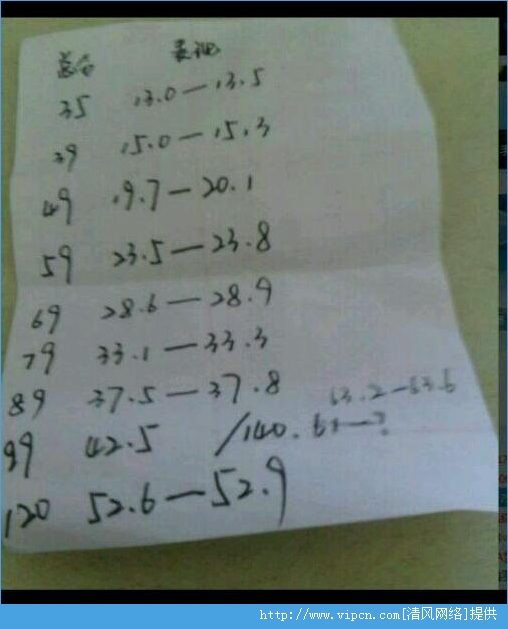 35 13.0—13.5
39 15.0—15.3
49 19.7—20.1
59 23.5—23.8
69 28.6—28.9
79 33.1—33.3
89 37.5—37.8
63.2—63.6
99 42.5 /140.
120 52.6—52.9
http://www.vipcn.com[清风网络]提供